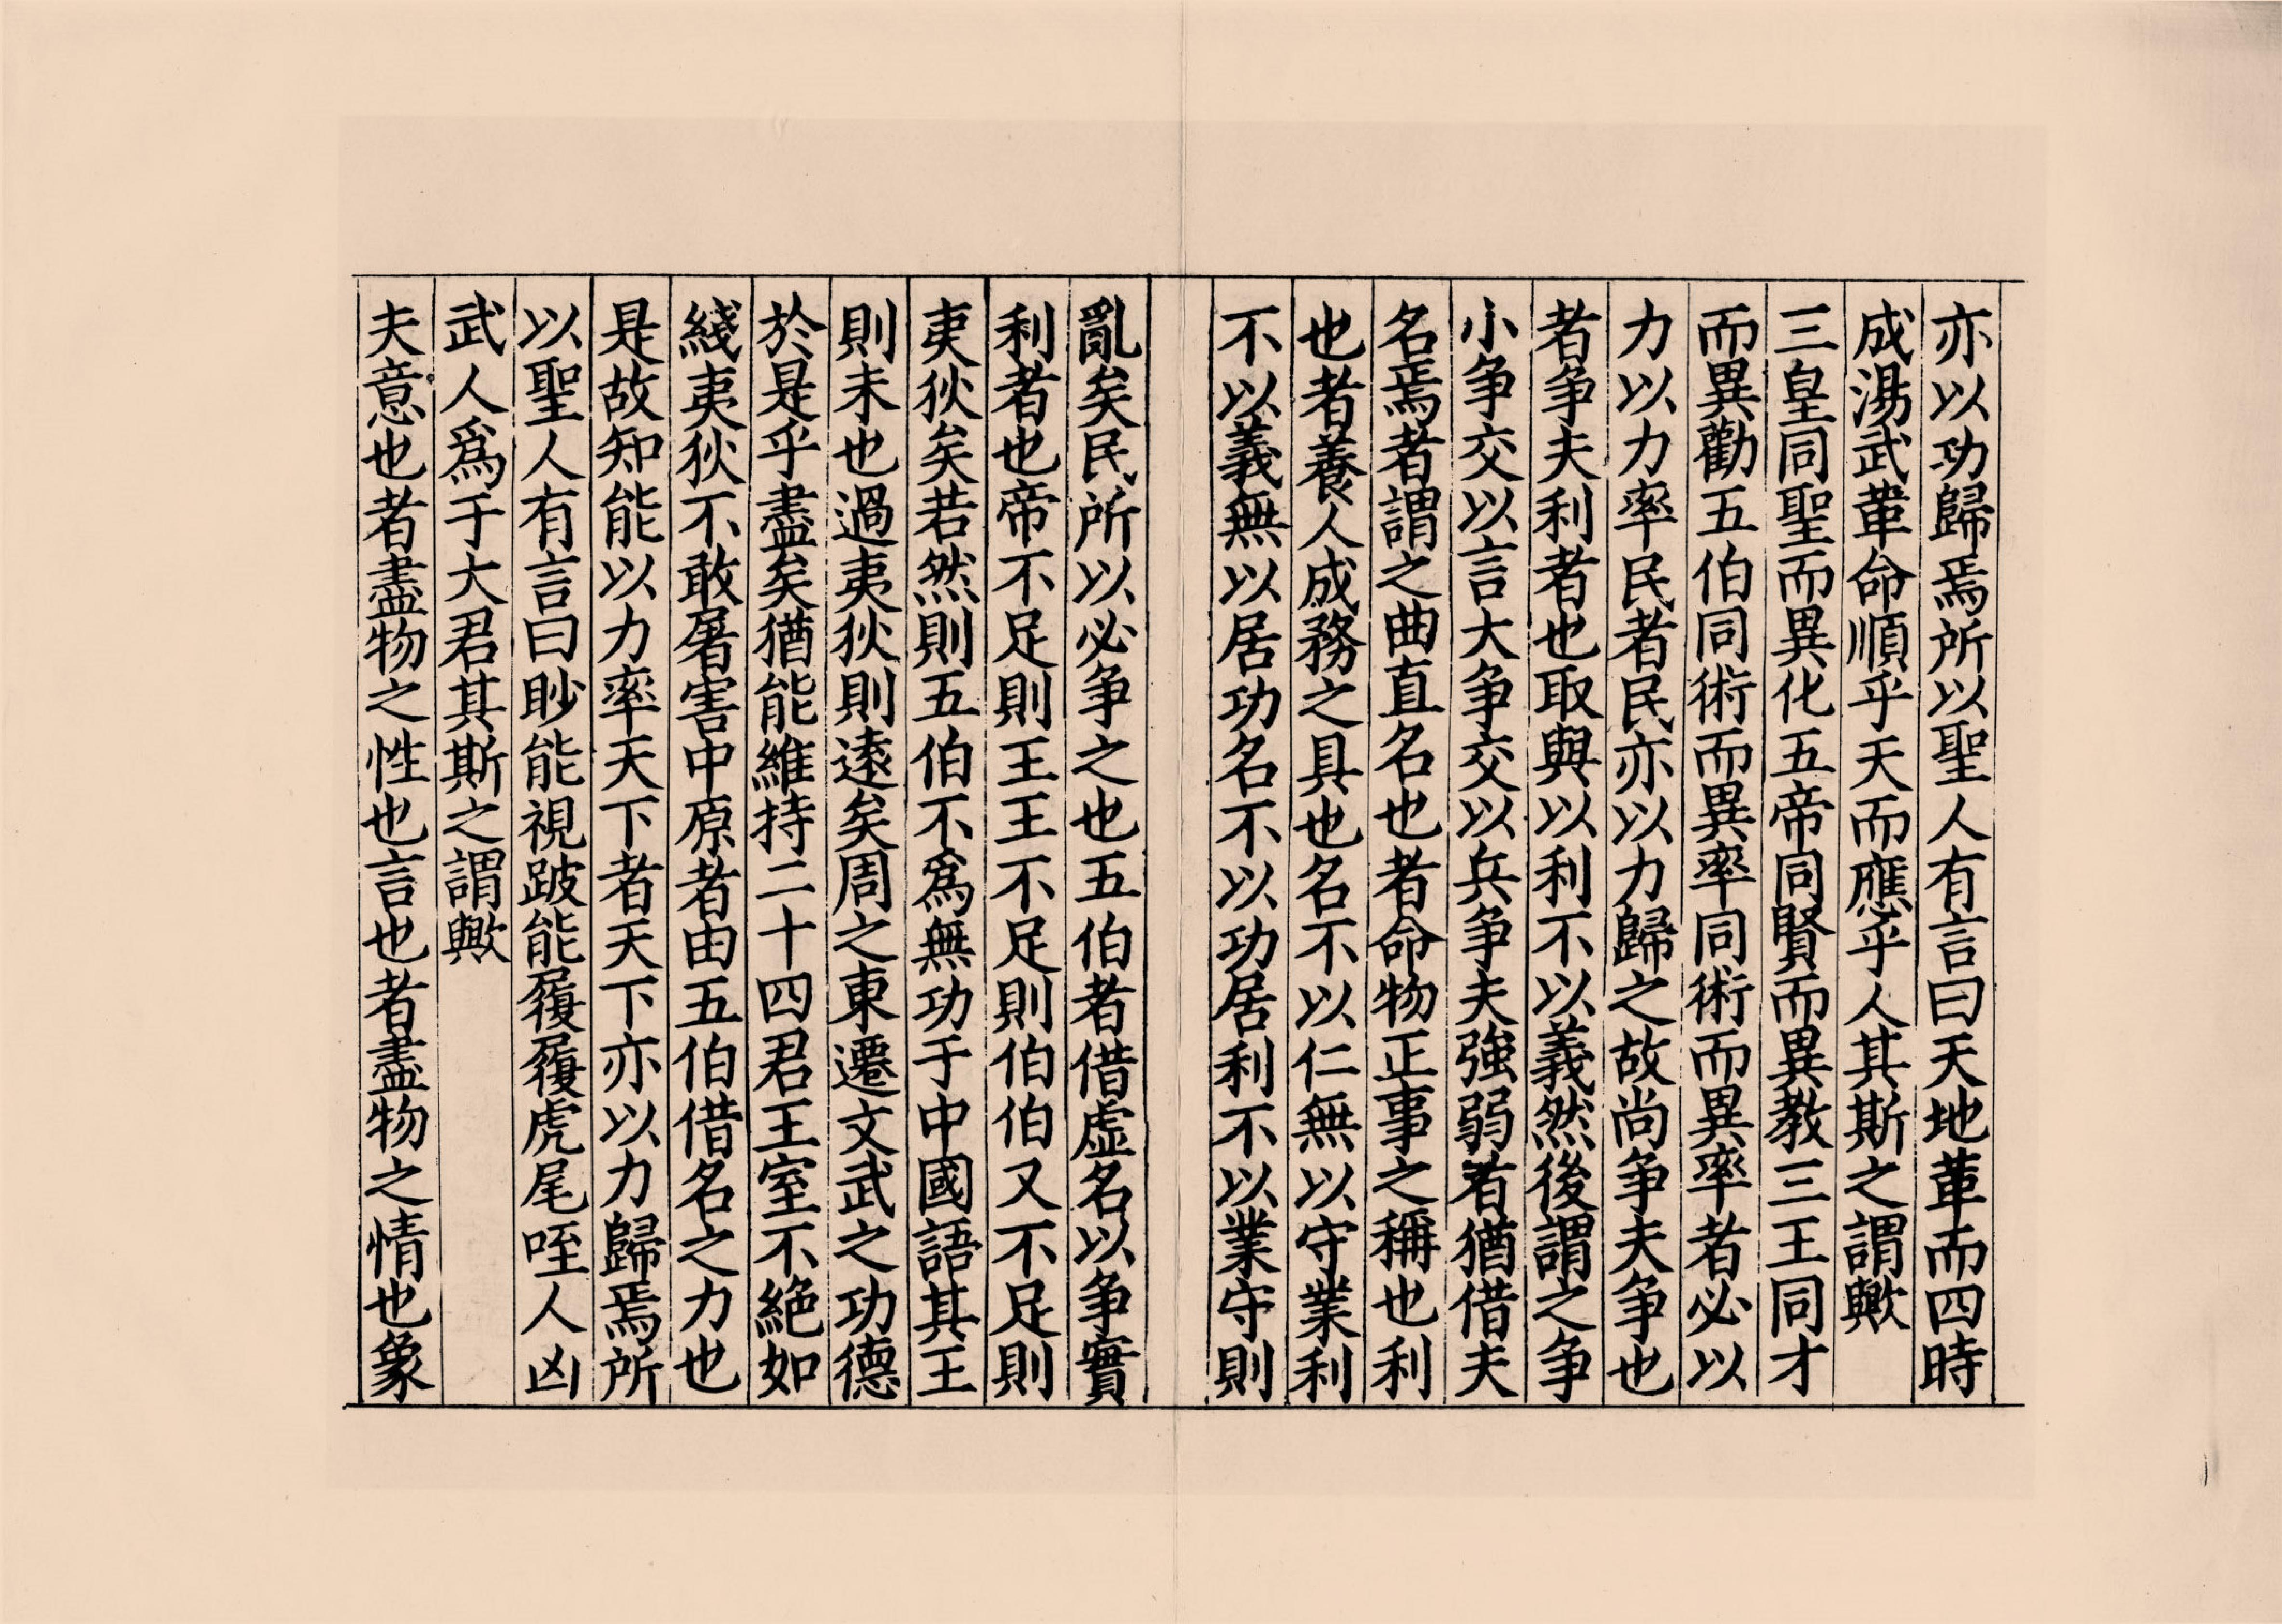 亦以功歸焉所以聖人有言曰天地革而四時
成湯武革命順乎天而應乎人其斯之謂歟
三皇同聖而異化五帝同賢而異教三王同才
而異勸五伯同術而異率同術而異率者必以
力以力率民者民亦以力歸之故尚争夫争也
者争夫利者也取與以利不以義然後謂之争
小争交以言大争交以兵争夫強弱者猶借夫
名焉者謂之曲直名也者命物正事之稱也利
也者養人成務之具也名不以仁無以守業利
不以義無以居功名不以功居利不以業守則
亂矣民所以必争之也五伯者借虚名以争實
利者也帝不足則王王不足則伯伯又不足則
夷狄矣若然則五伯不爲無功于中國語其王
則未也過夷狄則遠矣周之東遷文武之功德
於是乎盡矣猶能維持二十四君王室不絶如
綫夷狄不敢屠害中原者由五伯借名之力也
是故知能以力率天下者天下亦以力歸焉所
以聖人有言曰眇能視跛能履履虎尾咥人凶
武人爲于大君其斯之謂歟
夫意也者盡物之性也言也者盡物之情也象